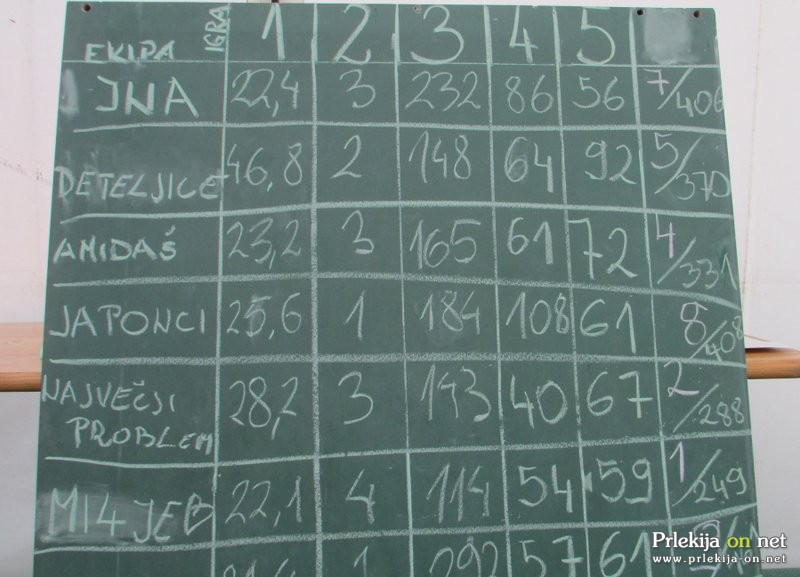 EKIPA IGRA 1 2 3 4 5
JNA 22,4 3 232 86 56 7/406
DETELJICE 46,8 2 148 64 92 5/370
AMIDAŠ 23,2 3 165 61 72 4/331
JAPONCI 25,6 1 184 108 61 8/408
NAJVEČJI PROBLEM 28,2 3 143 40 67 2/288
MI4 JEB 22,1 4 114 54 59 1/249
1 292 57 61
Prlekija on net
www.prlekija-on.net